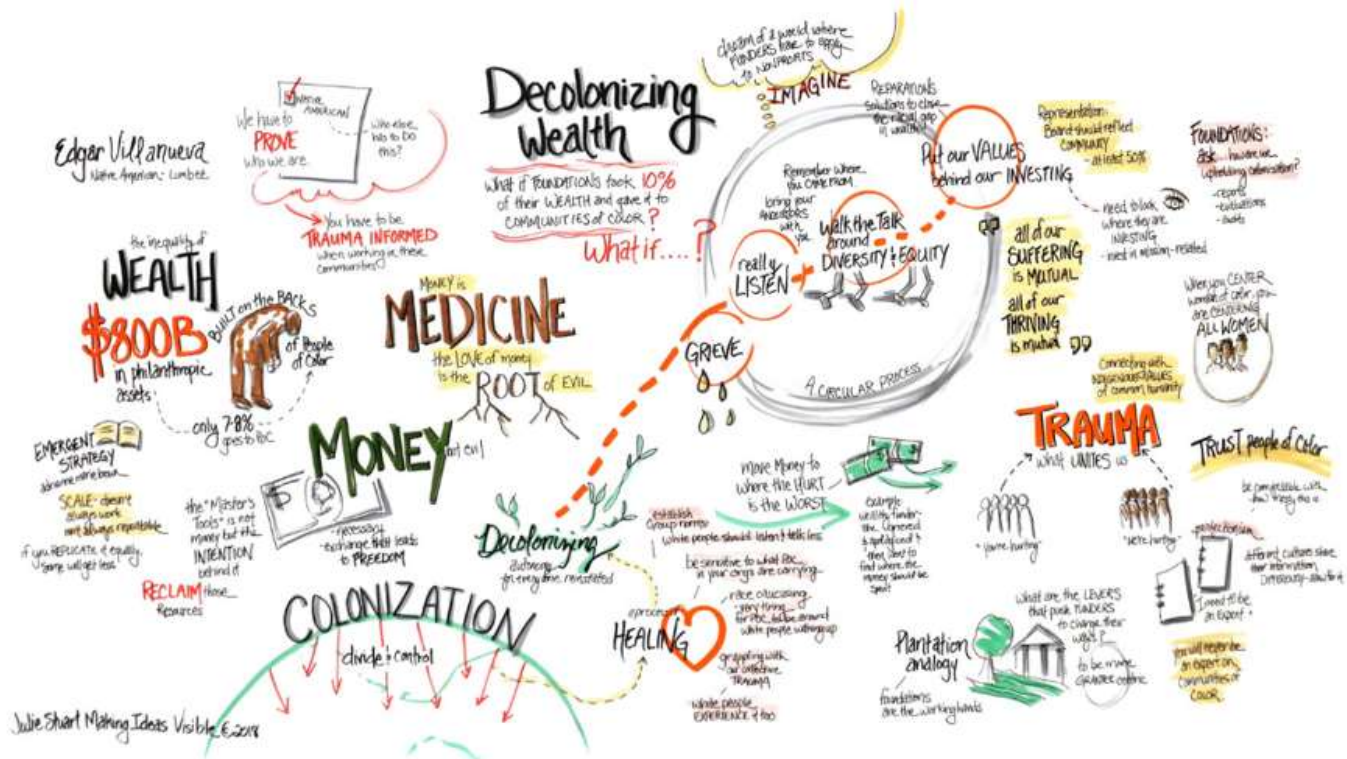 Edgar Villanueva
Native American - Lumbee
We have to
PROVE
who we are
NATIVE
AMERICAN
who else
has to DO
this?
You have to be
TRAUMA INFORMED
when working in these
communities
Decolonizing
Wealth
what if FOUNDATIONS took 10%
of their WEALTH and gave it to
COMMUNITIES of COLOR?
What if....?
dream of a world where
FUNDERS have to apply
to NONPROFITS
IMAGINE
REPARATIONS
solutions to close
the racial gap
in wealth
Put our VALUES
behind our INVESTING
Remember where
you CAME FROM
bring your
ANCESTORS
with
you
Walk the Talk
around
DIVERSITY & EQUITY
really
LISTEN
GRIEVE
A CIRCULAR PROCESS
Representation:
Board should reflect
COMMUNITY
- at least 50%
- need to look
where they are
INVESTING
- invest in mission-related
FOUNDATIONS:
ask how are we
upholding colonization?
- reports
- evaluations
- audits
all of our
SUFFERING
is MUTUAL
all of our
THRIVING
is mutual
When you CENTER
women of color, you
are CENTERING
ALL WOMEN
Connecting with
INDIGENOUS VALUES
of common humanity
the inequality of
WEALTH
$800B
in philanthropic
assets
BUILT on the BACKS
of People
of Color
only 7-8%
goes to PoC
MONEY is
MEDICINE
the LOVE of money
is the ROOT of EVIL
MONEY
not evil
- necessary
- exchange that leads
to FREEDOM
EMERGENT
STRATEGY
adrienne maree brown
SCALE - doesn't
always work
not always repeatable
if you REPLICATE it equally,
some will get less
the "Master's
Tools" is not
money but the
INTENTION
behind it
RECLAIM those
Resources
COLONIZATION
divide & control
Decolonizing
autonomy
for everyone reinstated
a process of
HEALING
establish
Group norms
white people should listen & talk less
be sensitive to what PoC
in your orgs are carrying
- race caucusing
- very tiring
for PoC to be around
white people waking up
grappling with
our collective
TRAUMA
- white people
EXPERIENCE it too
move Money to
where the HURT
is the WORST
example
find where the
money should be
spent
TRAUMA
what UNITES us
"you're hurting"
"we're hurting"
TRUST people of Color
be comfortable with
how messy this is
perfectionism
different cultures share
their information
DIFFERENTLY - allow for it
"I need to be
an Expert"
you will never be
an expert on
Communities of
COLOR
Plantation
analogy
foundations
are the working hands
what are the LEVERS
that push FUNDERS
to change their
ways?
to be more
GRANTEE centric
Julie Stuart Making Ideas Visible © 2018